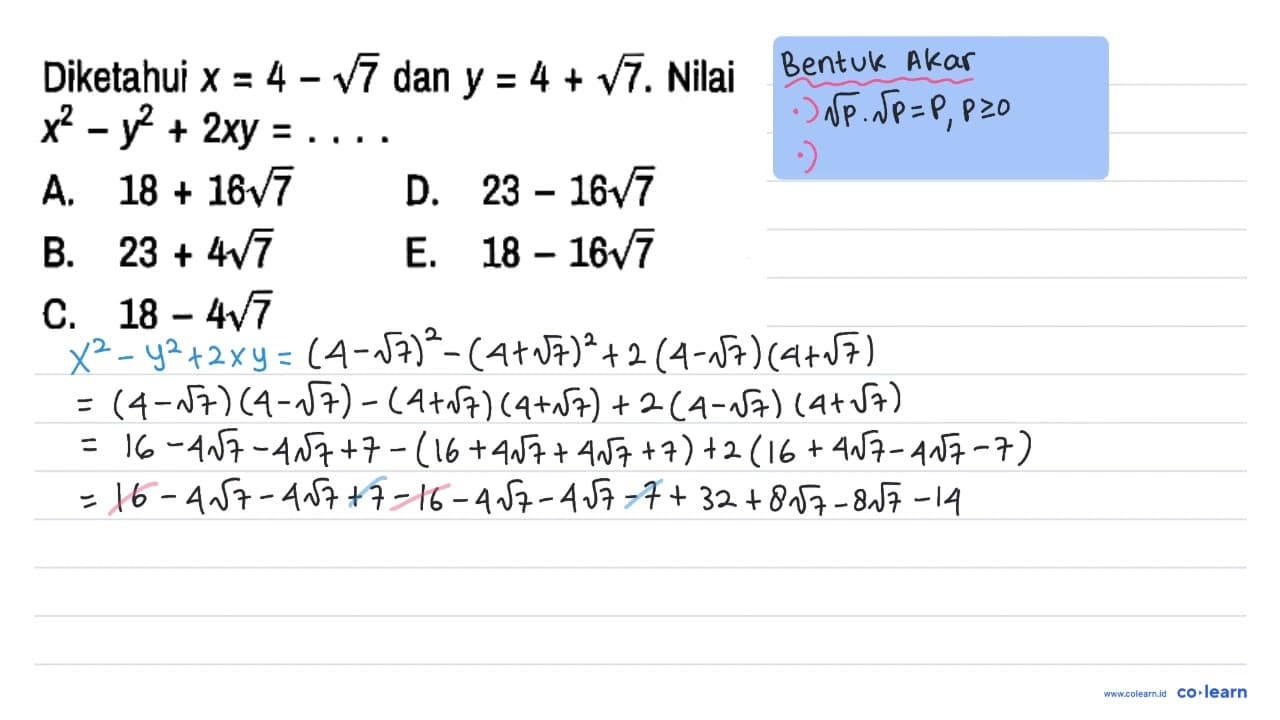 Diketahui x = 4 − √7 dan y = 4 + √7. Nilai
x² − y² + 2xy = . . . .
A. 18 + 16√7 D. 23 − 16√7
B. 23 + 4√7 E. 18 − 16√7
C. 18 − 4√7
Bentuk Akar
·) √p . √p = p, p ≥ 0
·)
x² − y² + 2xy = (4 − √7)² − (4 + √7)² + 2 (4 − √7)(4 + √7)
= (4 − √7)(4 − √7) − (4 + √7)(4 + √7) + 2 (4 − √7)(4 + √7)
= 16 − 4√7 − 4√7 + 7 − (16 + 4√7 + 4√7 + 7) + 2 (16 + 4√7 − 4√7 − 7)
= 16 − 4√7 − 4√7 + 7 − 16 − 4√7 − 4√7 − 7 + 32 + 8√7 − 8√7 − 14
www.colearn.id co·learn